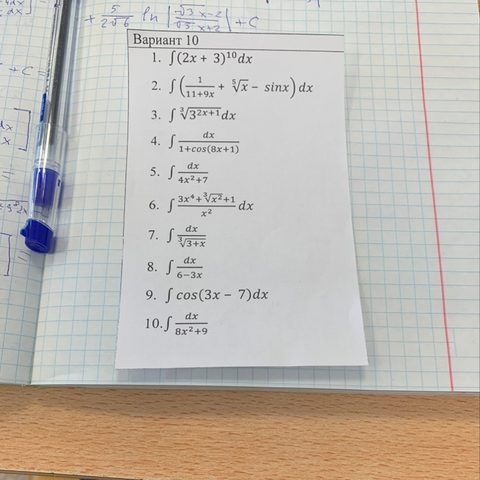 + 5/(2√6) ln |(√3 x-2)/(√3 x+2)| + C
Вариант 10
1. ∫(2x + 3)¹⁰dx
2. ∫(1/(11+9x) + ⁵√x − sinx) dx
3. ∫ ³√(3²ˣ⁺¹)dx
4. ∫ dx/(1+cos(8x+1))
5. ∫ dx/(4x²+7)
6. ∫ (3x⁴+³√(x²)+1)/x² dx
7. ∫ dx/³√(3+x)
8. ∫ dx/(6−3x)
9. ∫ cos(3x − 7)dx
10. ∫ dx/(8x²+9)